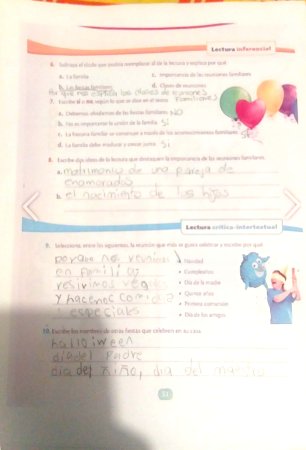 Lectura inferencial
6. Subraya el título que podría reemplazar al de la lectura y explica por qué
a. La familia
c. Importancia de las reuniones familiares
b. Las fiestas familiares
d. Clases de reuniones
Por que nos explica las clases de reuniones
familiares
7. Escribe sí o no, según lo que se dice en el texto.
a. Debemos olvidarnos de las fiestas familiares. NO
b. No es importante la unión de la familia. Si
c. La historia familiar se construye a través de los acontecimientos familiares. Si
d. La familia debe madurar y crecer junta. Si
8. Escribe dos ideas de la lectura que destaquen la importancia de las reuniones familiares.
a. matrimonio de una pareja de
enamorados
b. el nacimiento de los hijos
Lectura crítica-intertextual
9. Selecciona, entre las siguientes, la reunión que más te gusta celebrar y escribe por qué
porque nos reunimos
en familia
y hacemos comida
especiales
Navidad
Cumpleaños
Día de la madre
Quince años
Primera comunión
Día de los amigos
10. Escribe los nombres de otras fiestas que celebren en tu casa.
halloween
dia del Padre
dia del niño, dia del
51